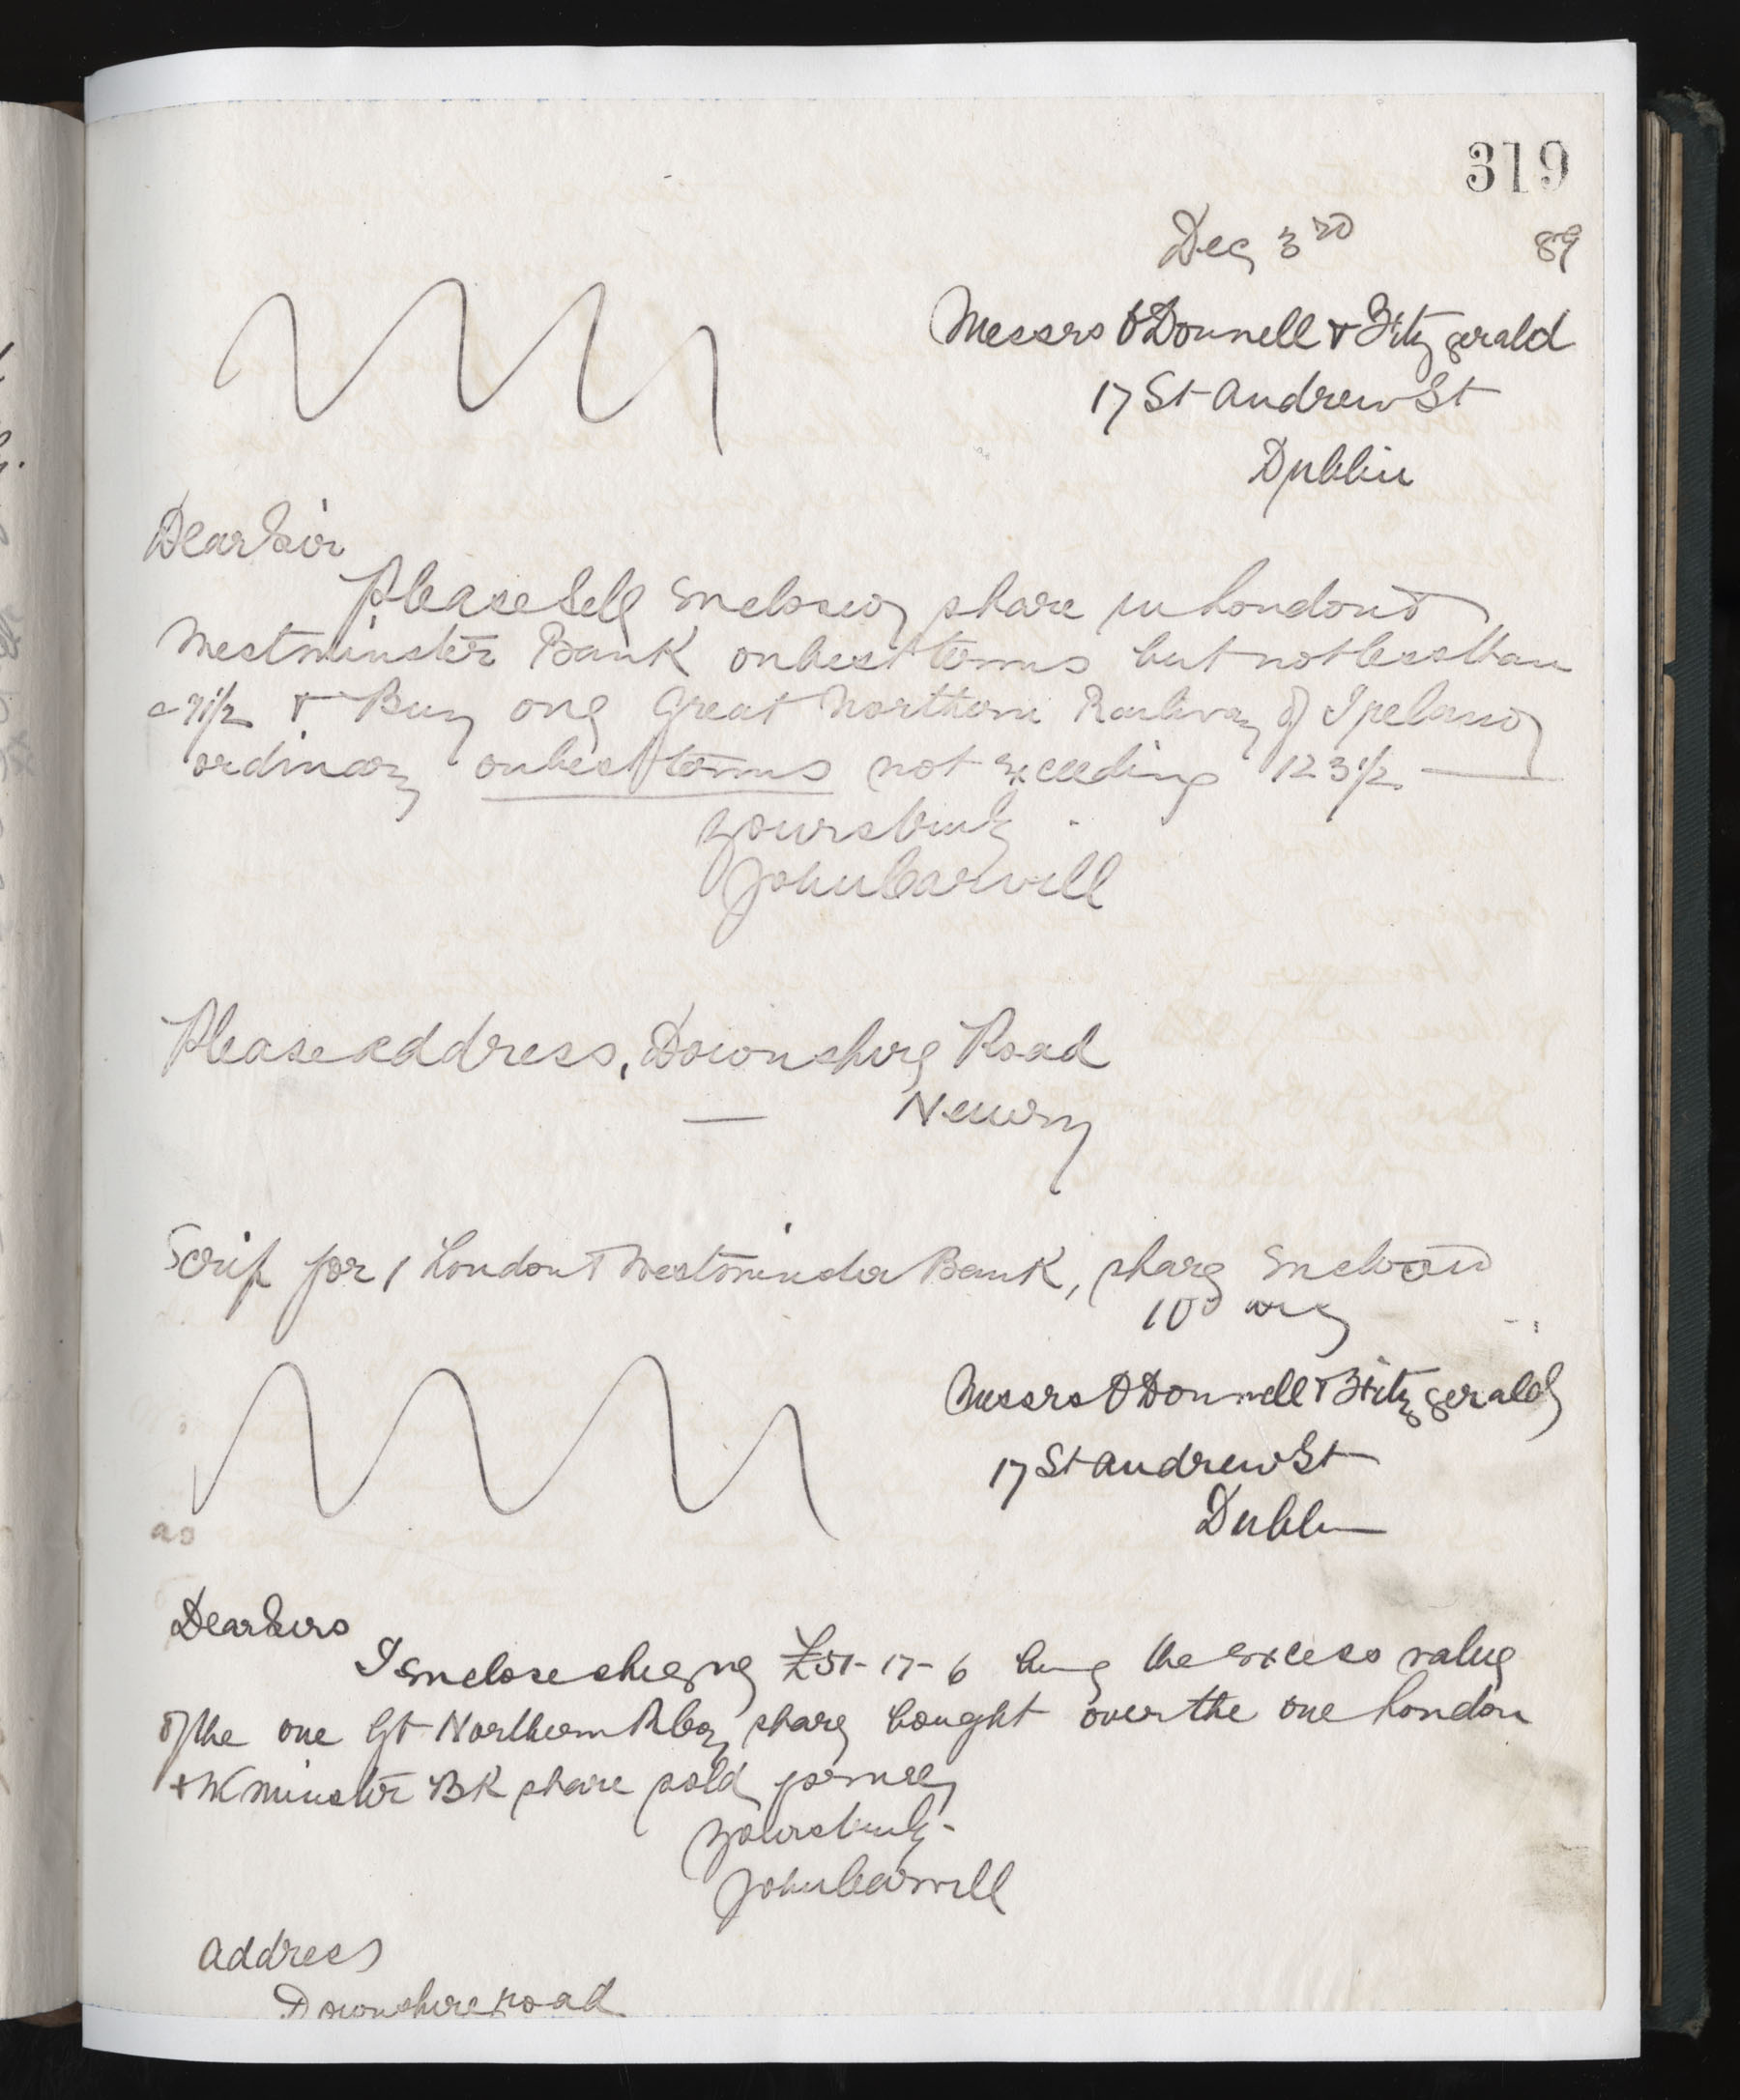 319
Dec 3rd 89
Messrs O'Donnell & Fitzgerald
17 St Andrew St
Dublin
Dear Sir
Please sell enclosed share in London &
Westminster Bank on best terms but not less than
71½ & Buy one Great Northern Railway of Ireland
ordinary on best terms not exceeding 123½
yours truly
John Carvill
Please address, Downshire Road
Newry
Scrip for 1 London & Westminster Bank, share Enclosed
10
Messrs O'Donnell & Fitzgerald
17 St Andrew St
Dublin
as
Dear Sirs
I enclose cheque £51-17-6 being the excess value
of the one Gt Northern Rlwy share bought over the one London
& Wminster BK share sold for me
yours truly
John Carvill
Address
Downshire road